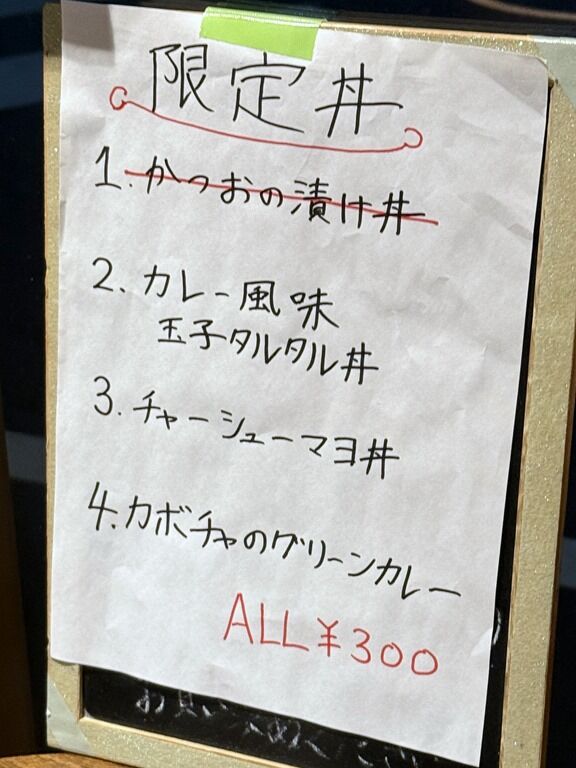 限定丼
1. かつおの漬け丼
2. カレー風味
玉子タルタル丼
3. チャーシューマヨ丼
4. カボチャのグリーンカレー
ALL ¥300